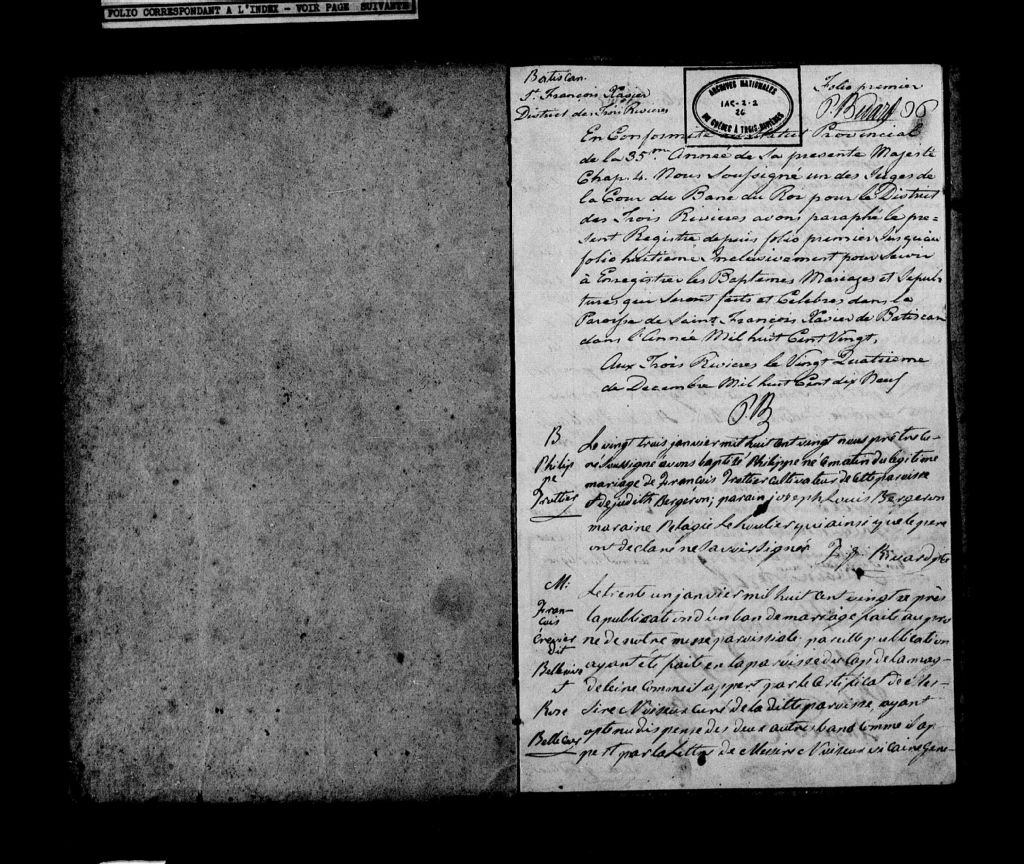 FOLIO CORRESPONDANT A L'INDEX - VOIR PAGE SUIVANTE
Batiscan.
St. François Xavier
District des Trois Rivieres
ARCHIVES NATIONALES
IAC-2-2
26
DU QUÉBEC À TROIS-RIVIÈRES
Folio premier
P. Bedard
En Conformité au Statut Provincial
de la 35me. Année de Sa presente Majesté
Chap. 4. Nous Soussigné un des Juges de
la Cour du Banc du Roi pour le District
des Trois Rivieres avons paraphé le pre-
sent Registre depuis folio premier jusqu'au
folio huitieme Inclusivement pour Servir
à Enregistrer les Baptêmes Mariages et Sepul-
tures qui Seront faits et Célébrés dans la
Paroisse de Saint François Xavier de Batiscan
dans l'Année Mil huit Cent Vingt,
Aux Trois Rivieres le Vingt Quatrieme
de Decembre Mil huit Cent dix Neuf
P. B
B
Philip
pe
Trottier
Le vingt trois janvier mil huit cent vingt nous prêtre cu-
ré soussigné avons baptisé Philippe né ce matin du légitime
mariage de François Trottier cultivateur de cette paroisse
& de judith Bergeron; parain joseph Louis Bergeron
maraine Pelagie qui ainsi que le pere
ont declaré ne savoir signer
M:
Fran-
çois
Crevier
dit
Bellerive
&
Rose
Le trente un janvier mil huit cent vingt après
la publication d'un ban de mariage faite au pro
ne de notre messe paroissiale. pareille publication
ayant été faite en la paroisse du Cap de la mag-
deleine comme il appert par le certificat de Mes-
sire curé de la ditte paroisse, ayant
optenu dispense des deux autres bans comme il ap
pert par la lettre de Messire vicaire Gene-